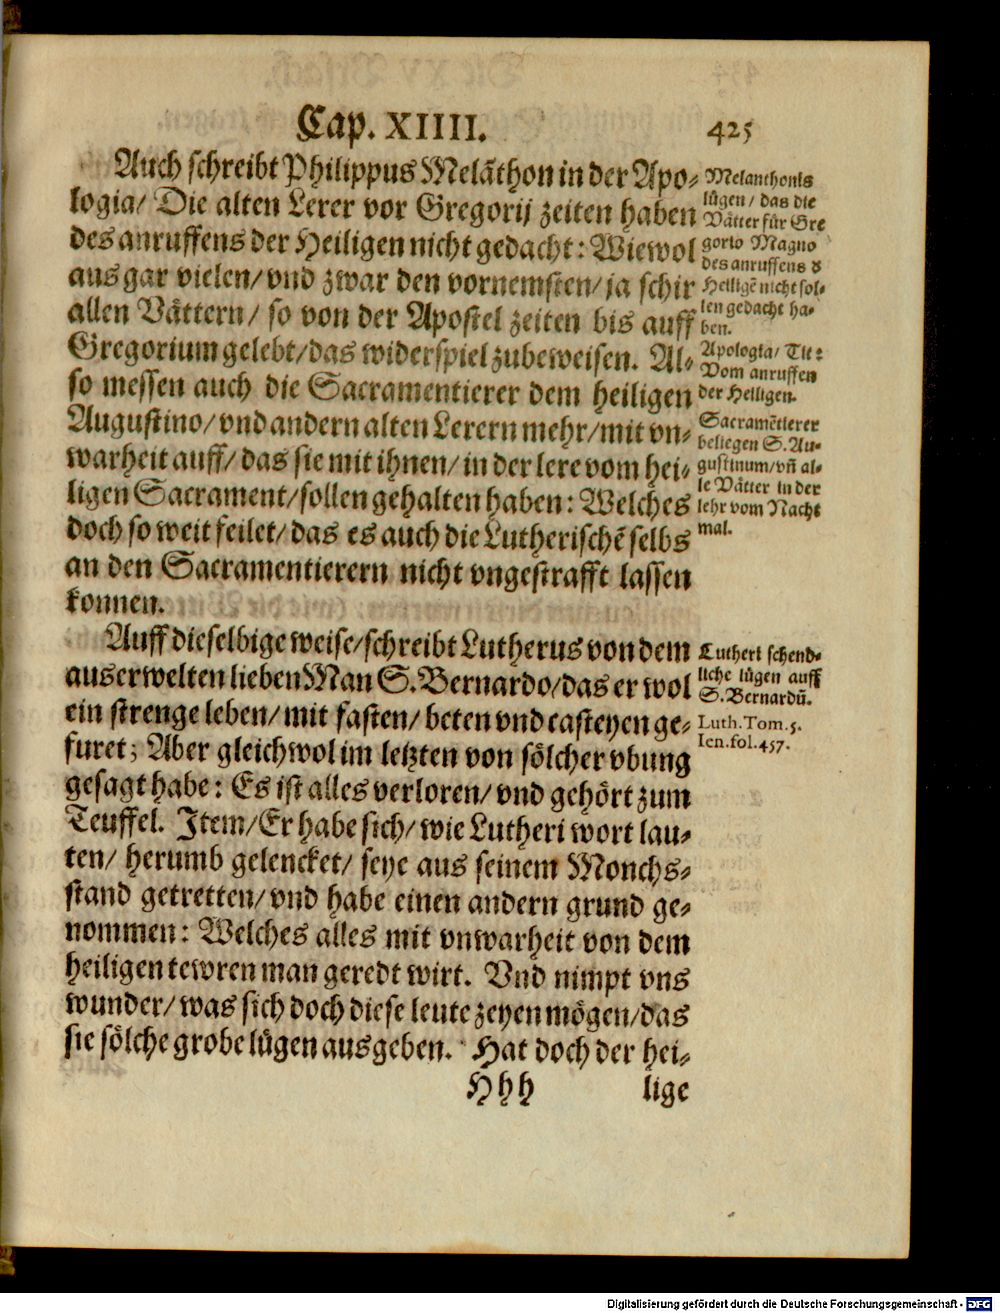 Cap. XIIII. 425
Auch schreibt Philippus Melāthon in der Apo⸗
logia/ Die alten Lerer vor Gregorij zeiten haben
des anruffens der Heiligen nicht gedacht: Wiewol
aus gar vielen/ vnd zwar den vornemsten/ ja schir
allen Vättern/ so von der Apostel zeiten bis auff
Gregorium gelebt/ das widerspiel zubeweisen. Al⸗
so messen auch die Sacramentierer dem heiligen
Augustino/ vnd andern alten Lerern mehr/ mit vn⸗
warheit auff/ das sie mit ihnen/ in der lere vom hei⸗
ligen Sacrament/ sollen gehalten haben: Welches
doch so weit feilet/ das es auch die Lutherischē selbs
an den Sacramentierern nicht vngestrafft lassen
konnen.
Auff dieselbige weise/ schreibt Lutherus von dem
auserwelten lieben Man S. Bernardo/ das er wol
ein strenge leben/ mit fasten/ beten vnd casteyen ge⸗
furet; Aber gleichwol im letzten von sölcher vbung
gesagt habe: Es ist alles verloren/ vnd gehört zum
Teuffel. Item/ Er habe sich/ wie Lutheri wort lau⸗
ten/ herumb gelencket/ seye aus seinem Monchs⸗
stand getretten/ vnd habe einen andern grund ge⸗
nommen: Welches alles mit vnwarheit von dem
heiligen tewren man geredt wirt. Vnd nimpt vns
wunder/ was sich doch diese leute zeyen mögen/ das
sie sölche grobe lügen ausgeben. Hat doch der hei⸗
Hhh lige
Melanthonis
lügen/ das die
Vätter für Gre
gorio Magno
des anruffens d
Heiligē nicht sol⸗
len gedacht ha⸗
ben.
Apologia/ Tit:
Vom anruffen
der Heiligen.
Sacramētierer
beliegen S. Au⸗
gustinum/ vñ al⸗
le Vätter in der
lehr vom Nacht
mal.
Lutheri schend⸗
liche lügen auff
S. Bernardū.
Luth. Tom. 5.
Ien. fol. 457.
Digitalisierung gefördert durch die Deutsche Forschungsgemeinschaft - DFG